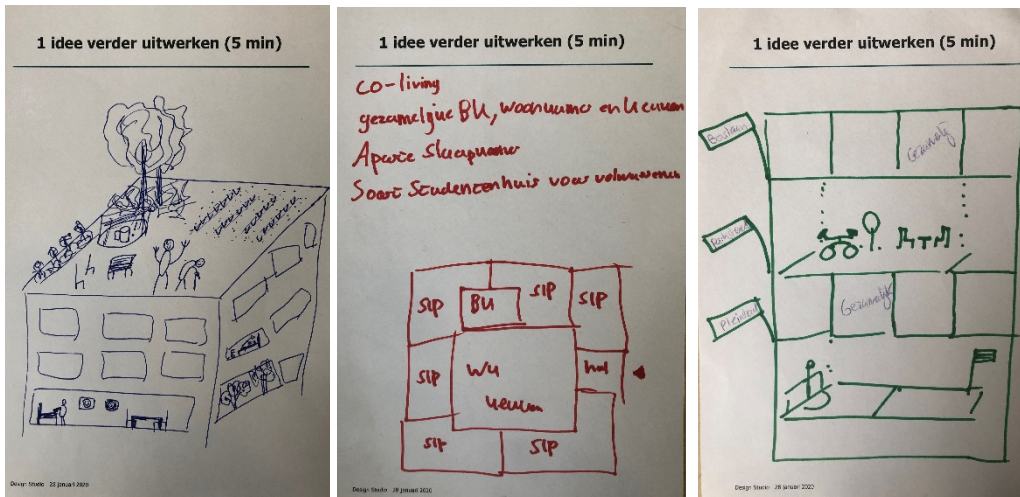 1 idee verder uitwerken (5 min)
Design Studio 28 januari 2020
1 idee verder uitwerken (5 min)
co-living
gezamelijke BK, woonkamer en keuken
Aparte slaapkamer
Soort studentenhuis voor volwassenen
slp
BK
slp
slp
slp
WK
keuken
hal
slp
slp
Design Studio 28 januari 2020
1 idee verder uitwerken (5 min)
Gezamelijk
Gezamelijk
Design Studio 28 januari 2020